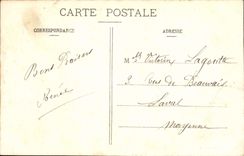 CARTE POSTALE
CORRESPONDANCE
ADRESSE
Bons Baisers
Renée
M. Victorine Lagoutte
3 rue de Beauvais
Laval
Mayenne